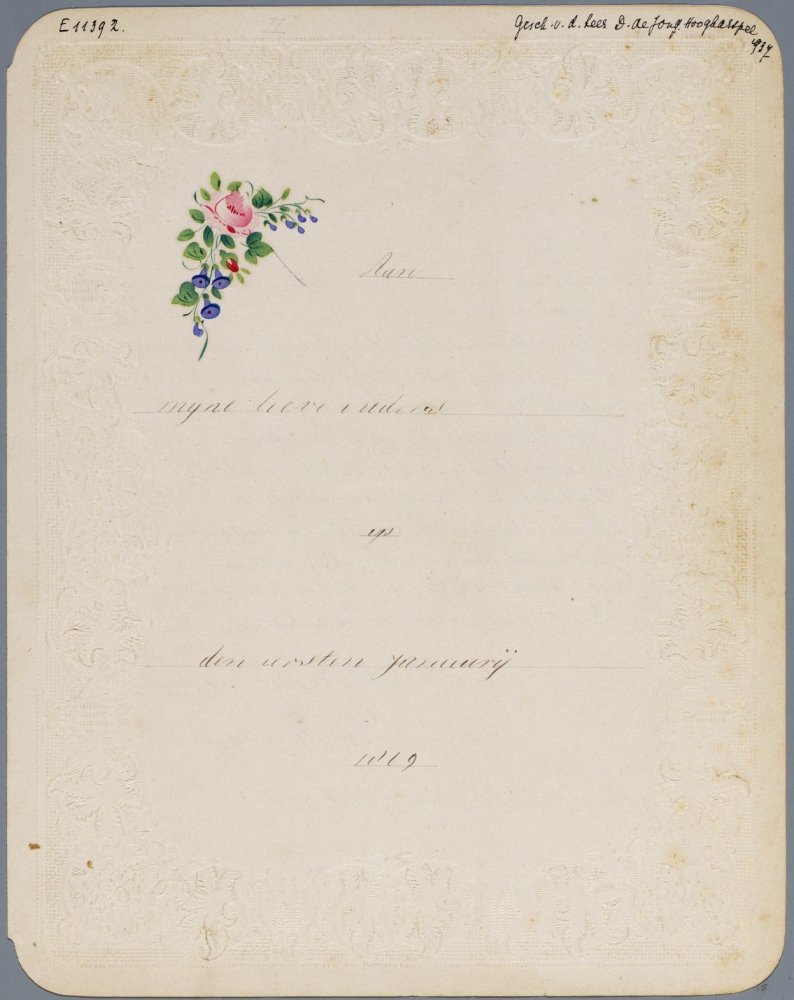 E 11392.
Gesch. v. d. Heer D. de Jong. Hoogkarspel
1937
Aan
myne lieve ouders
op
den eersten Januarij
1869